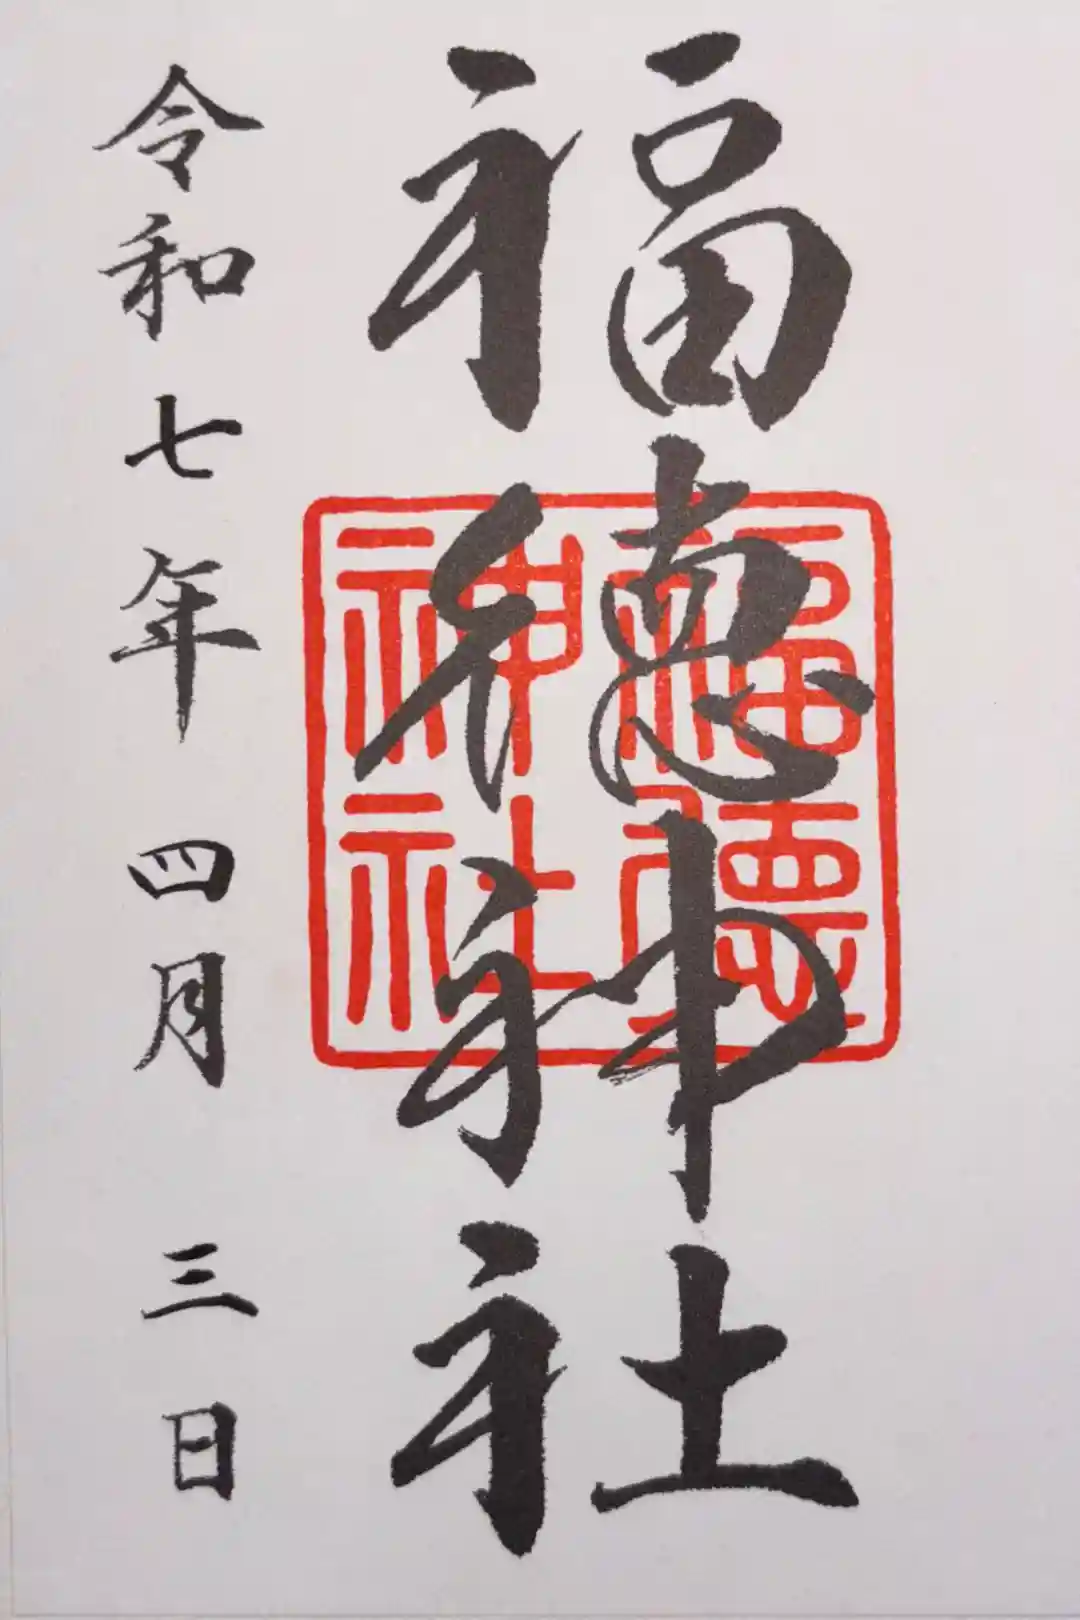 福徳神社
福徳神社
令和七年四月三日